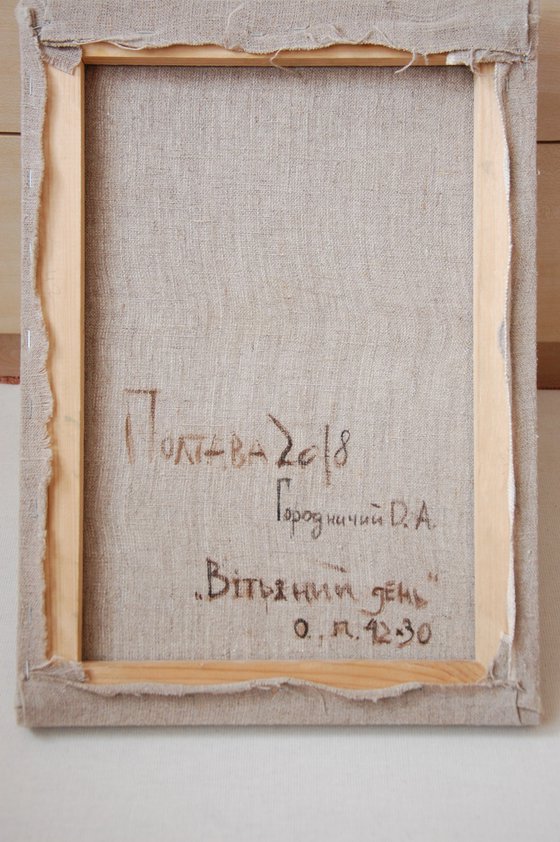 Полтава 2018
Городничий D. А.
„Вітряний день"
о., п. 42×30